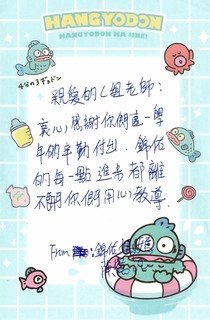 HANGYODON
HANGYODON HA IINE!
親愛的C組老師：
衷心感謝你們這一學
年的辛勤付出，錦佑
的每一點進步都離
不開你們用心教導！
From：錦佑